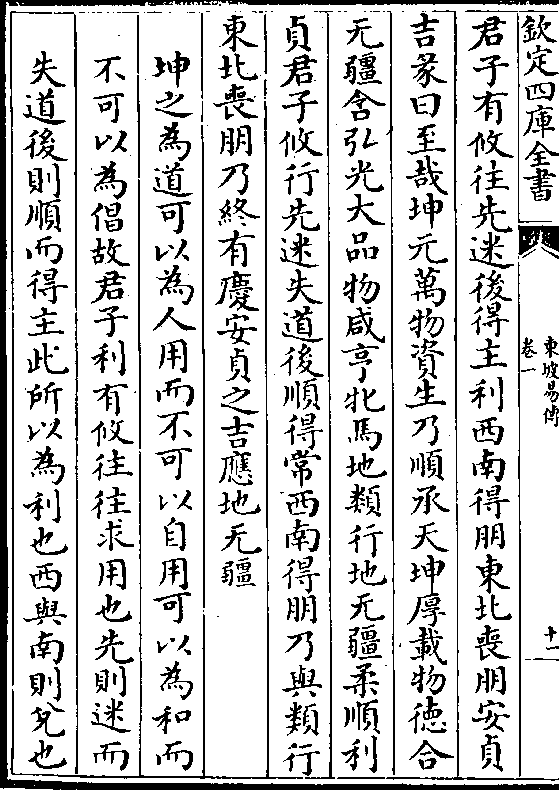 欽定四庫全書
東坡易傳
卷一
十一
君子有攸往先迷後得主利西南得朋東北喪朋安貞
吉彖曰至哉坤元萬物資生乃順承天坤厚載物德合
无疆含弘光大品物咸亨牝馬地類行地无疆柔順利
貞君子攸行先迷失道後順得常西南得朋乃與類行
東北喪朋乃終有慶安貞之吉應地无疆
坤之為道可以為人用而不可以自用可以為和而
不可以為倡故君子利有攸往往求用也先則迷而
失道後則順而得主此所以為利也西與南則兌也